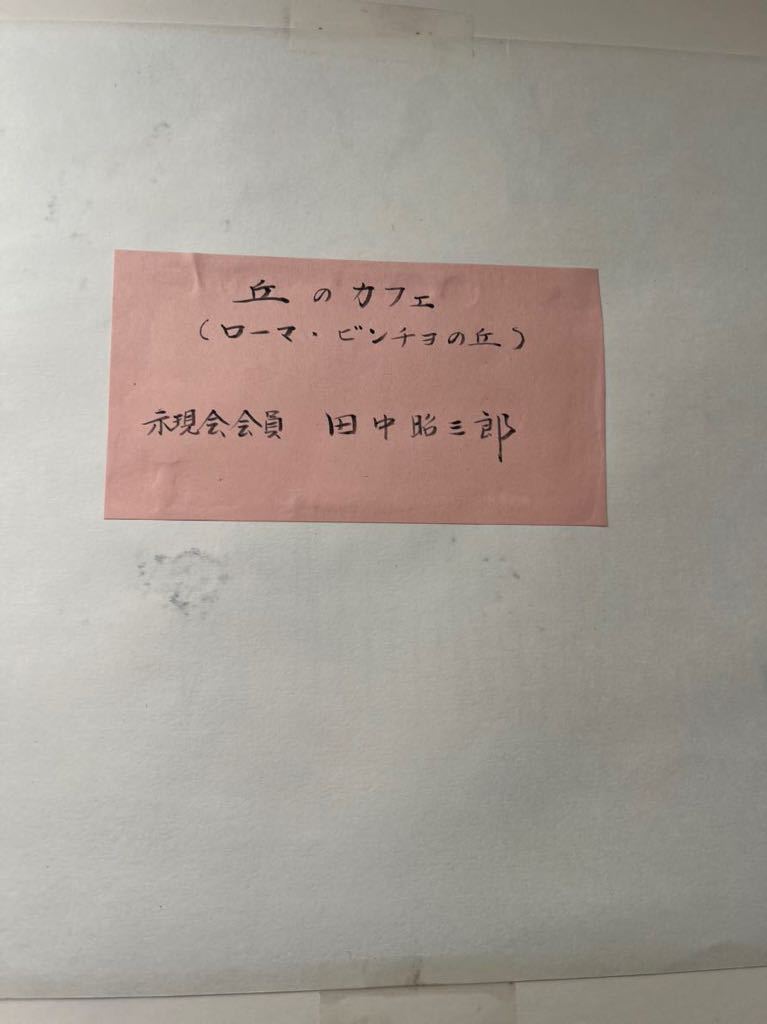 丘のカフェ
(ローマ・ビンチョの丘)
示現会会員 田中昭三郎